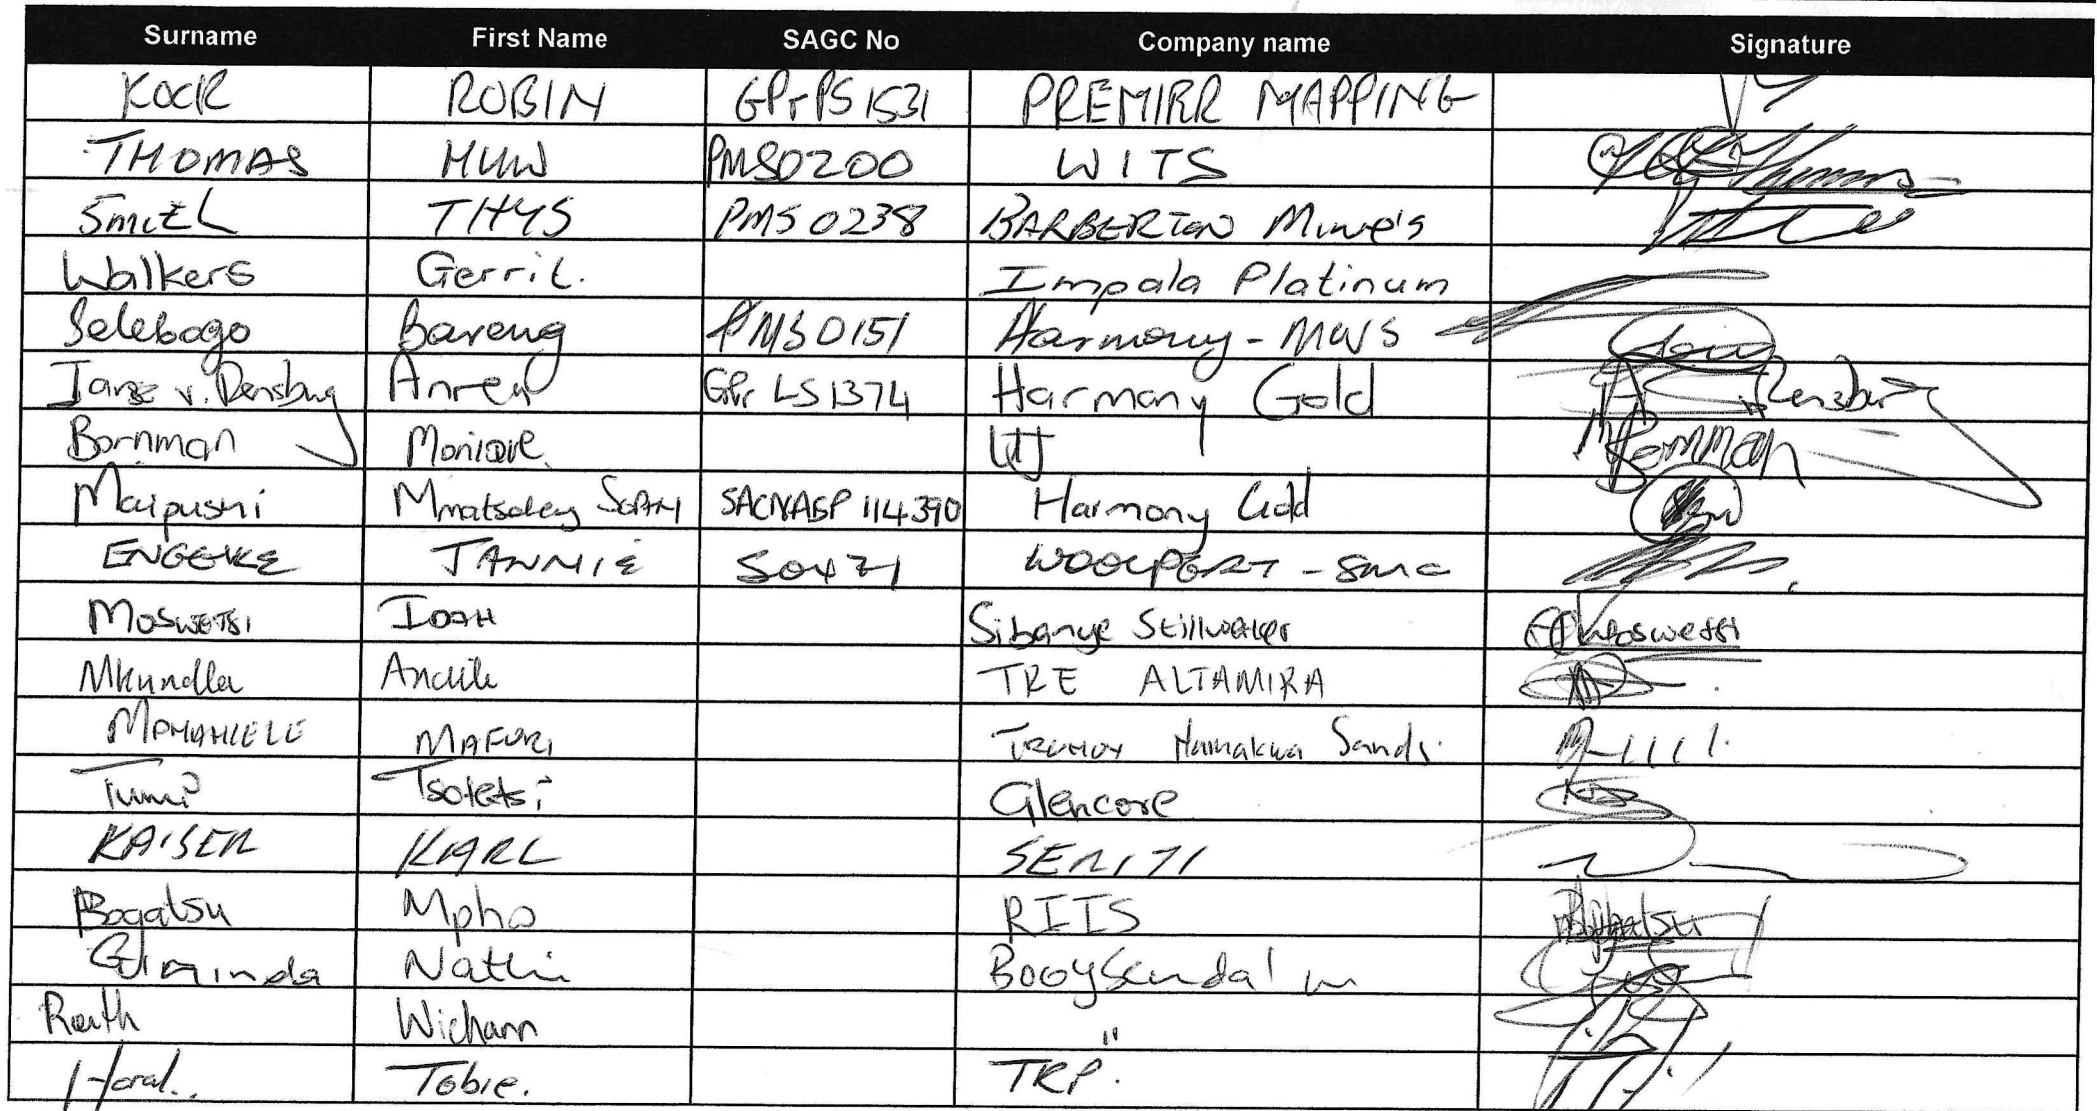 Surname First Name SAGC No Company name Signature
KOCK ROBIN GPrPS1531 PREMIRR MAPPING
THOMAS HUW PMS0200 WITS Thomas
Smith THYS PMS 0238 BARBERTON Mine's
Walkers Gerrit. Impala Platinum
Selebogo Bareng PMS0151 Harmony - MWS
Janse v. Rensburg GPr LS1374 Harmony Gold Rensburg
Bornman Monique UJ Bornman
Maipushi SACNASP 114390 Harmony Gold
ENGELKE JANNIE WOOLPERT - SMC
MOSWETSI IDAH Sibanye Stillwater Moswetsi
Mkundla Andile TRE ALTAMIRA
MAFORI Namakwa Sands
Tumi Tsotetsi Glencore
KAISER KARL SERITI
Bogatsu Mpho RIIS Bogatsu
Booysendal
Wichann "
Tobie. TRP.